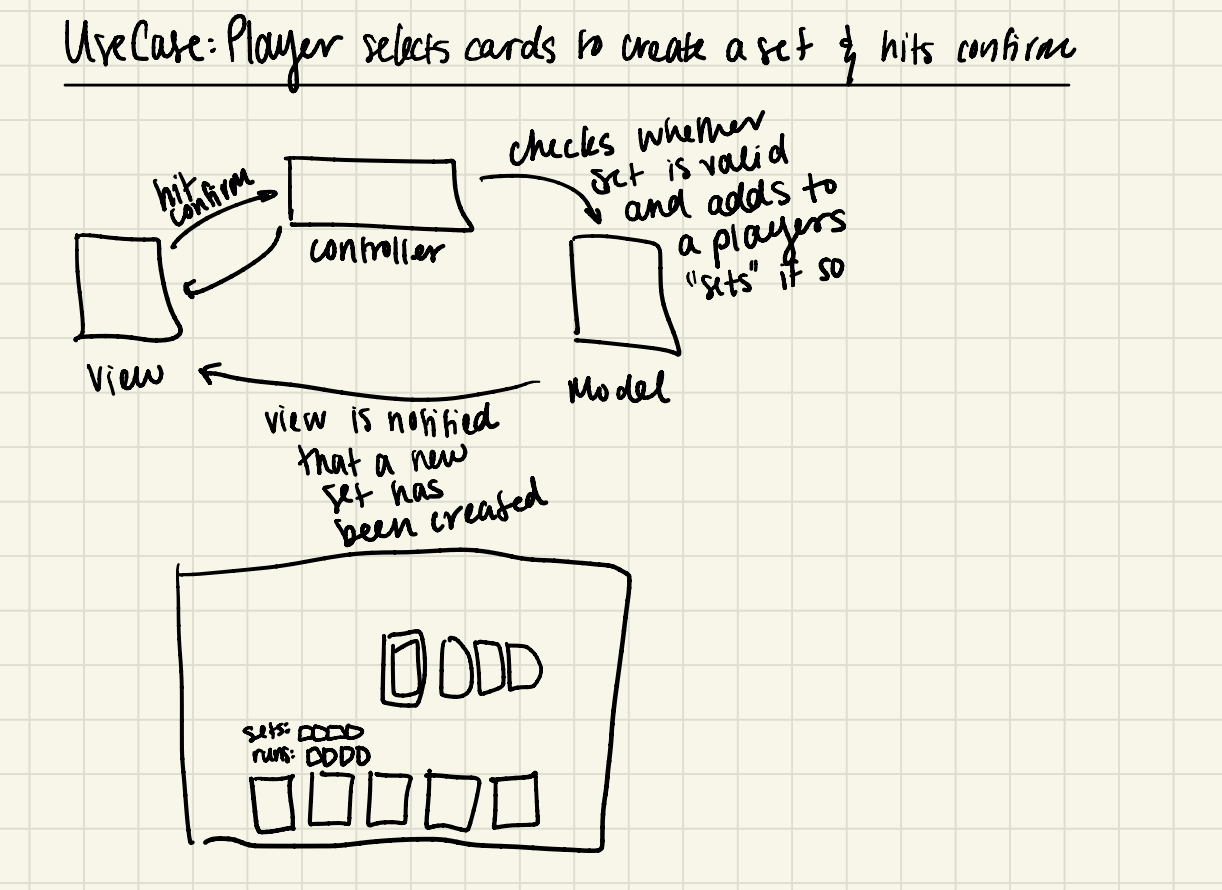 UseCase: Player selects cards to create a set & hits confirm
hit
confirm
checks whether
set is valid
and adds to
a players
"sets" if so
controller
view
Model
view is notified
that a new
set has
been created
sets:
runs: